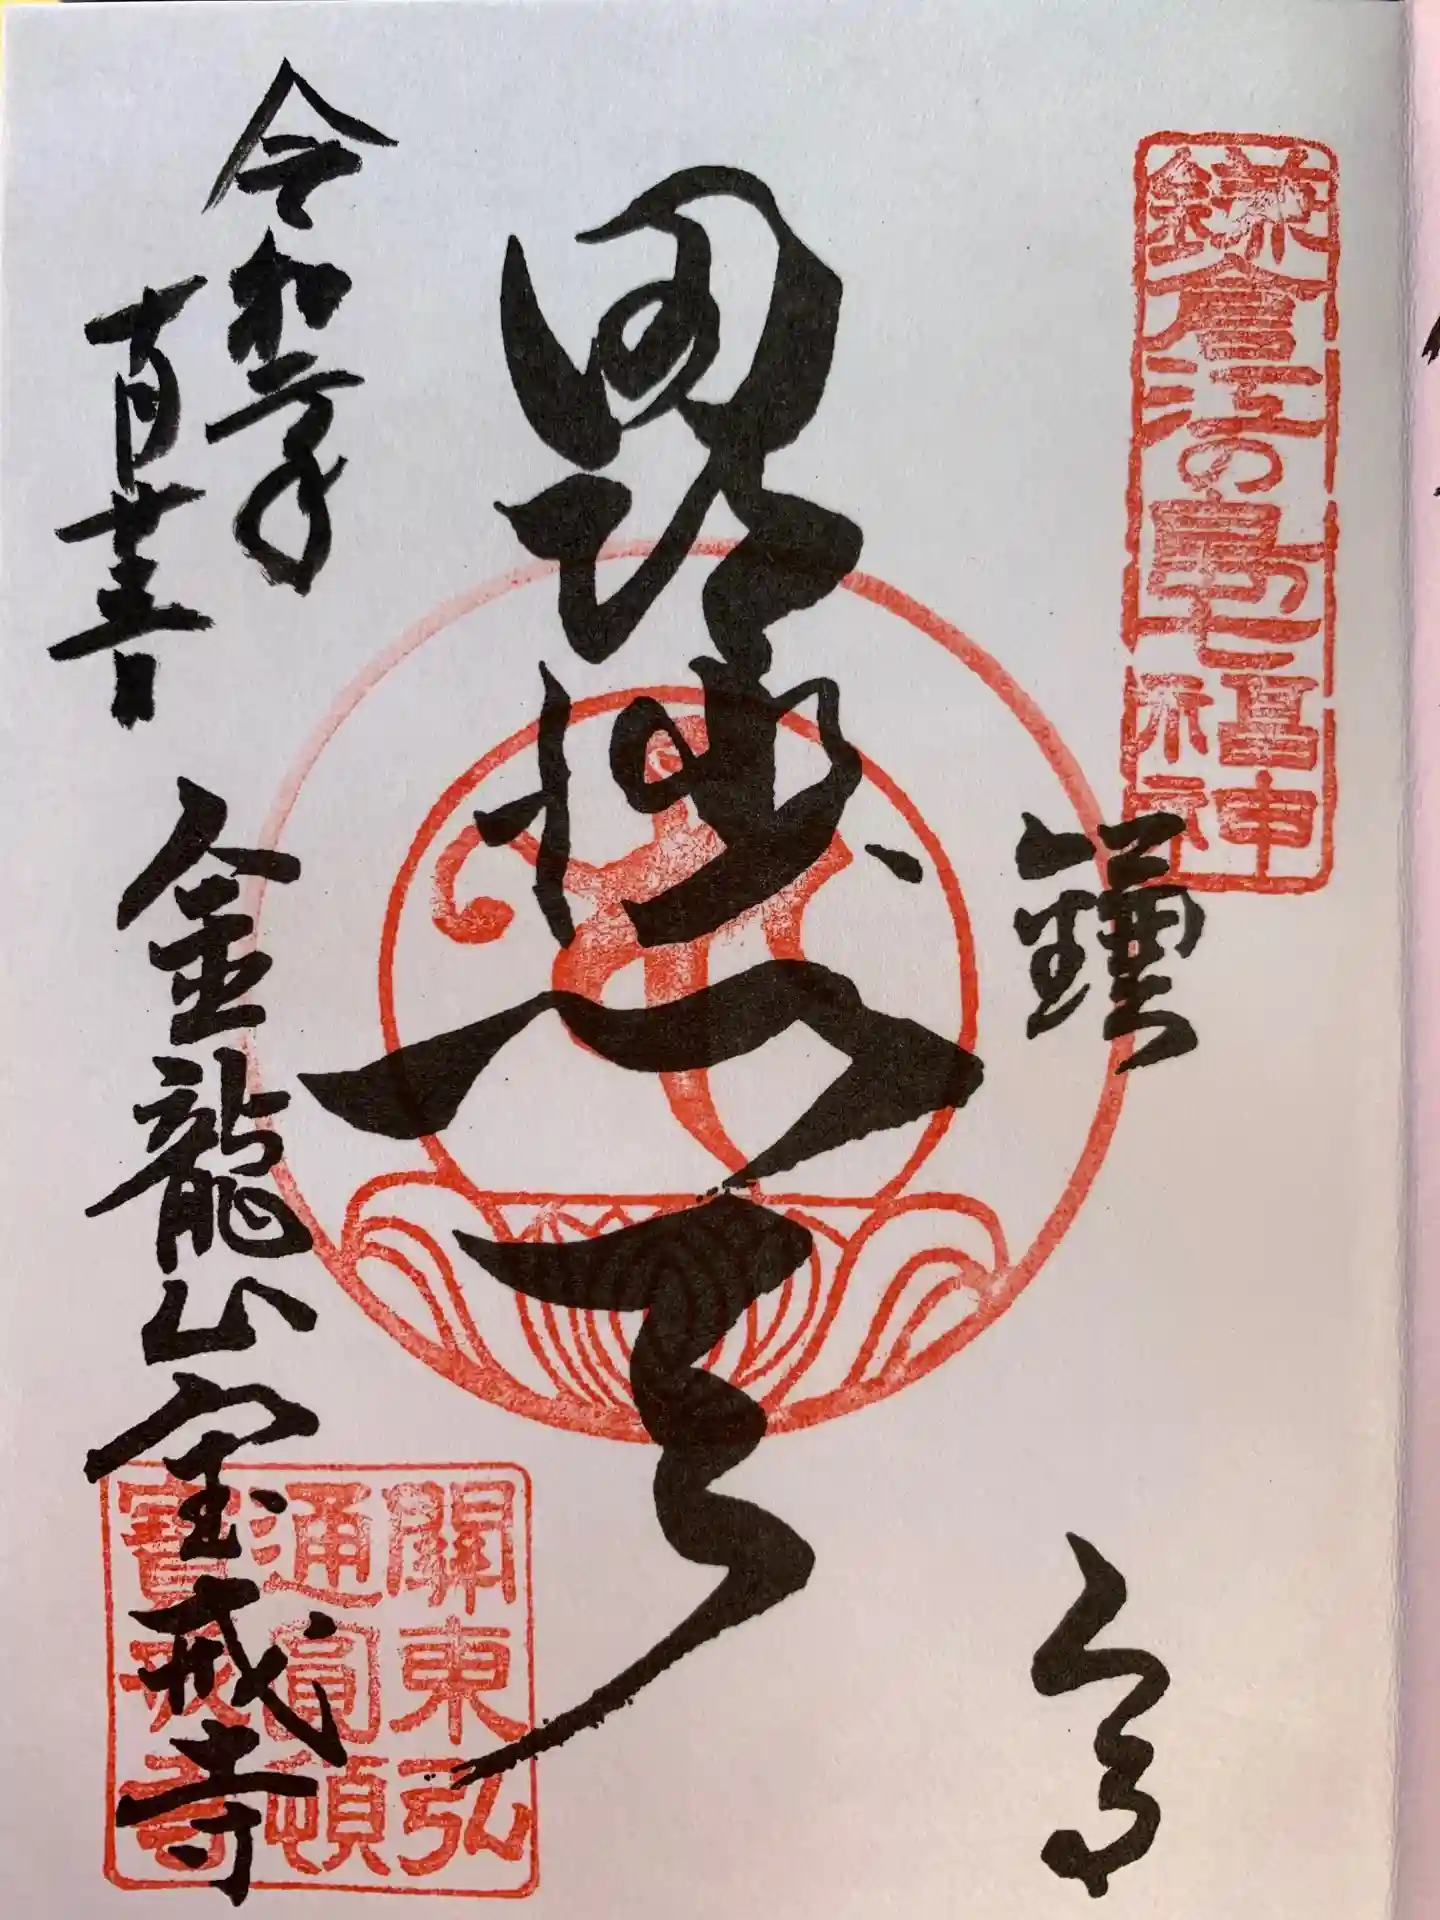 鎌倉江の島七福神
鎌倉
毘沙門天
令和二年
金龍山宝戒寺
關東弘
通圓頓
寶戒寺